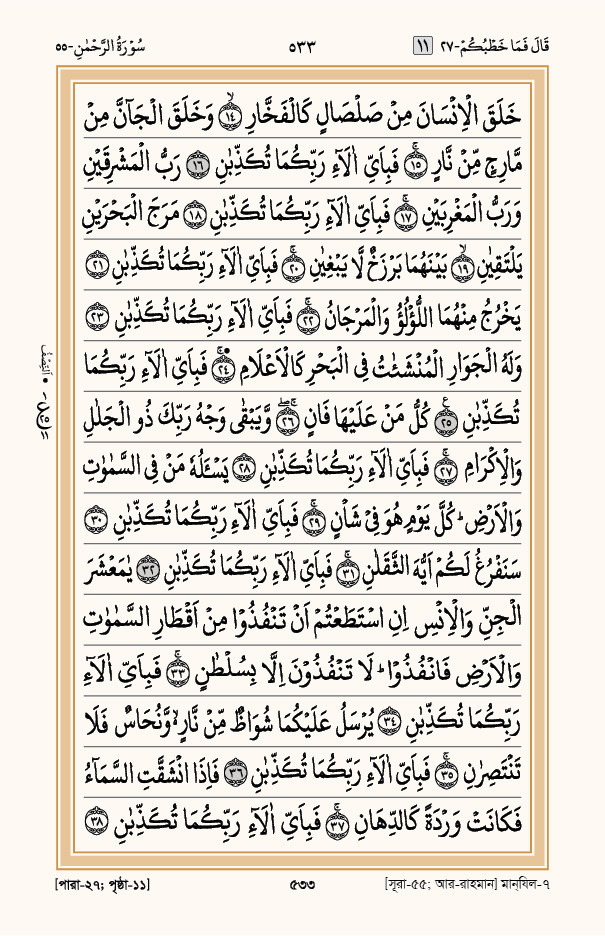 قَالَ فَمَا خَطْبُكُمْ-٢٧ ١١ ٥٣٣ سُوْرَةُ الرَّحْمٰنِ-٥٥
خَلَقَ الْاِنْسَانَ مِنْ صَلْصَالٍ كَالْفَخَّارِ ۙ﴿١٤﴾ وَخَلَقَ الْجَآنَّ مِنْ
مَّارِجٍ مِّنْ نَّارٍ ۚ﴿١٥﴾ فَبِاَيِّ اٰلَآءِ رَبِّكُمَا تُكَذِّبٰنِ ﴿١٦﴾ رَبُّ الْمَشْرِقَيْنِ
وَرَبُّ الْمَغْرِبَيْنِ ۚ﴿١٧﴾ فَبِاَيِّ اٰلَآءِ رَبِّكُمَا تُكَذِّبٰنِ ﴿١٨﴾ مَرَجَ الْبَحْرَيْنِ
يَلْتَقِيٰنِ ۙ﴿١٩﴾ بَيْنَهُمَا بَرْزَخٌ لَّا يَبْغِيٰنِ ۚ﴿٢٠﴾ فَبِاَيِّ اٰلَآءِ رَبِّكُمَا تُكَذِّبٰنِ ﴿٢١﴾
يَخْرُجُ مِنْهُمَا اللُّؤْلُؤُ وَالْمَرْجَانُ ۚ﴿٢٢﴾ فَبِاَيِّ اٰلَآءِ رَبِّكُمَا تُكَذِّبٰنِ ﴿٢٣﴾
وَلَهُ الْجَوَارِ الْمُنْشَئٰتُ فِى الْبَحْرِ كَالْاَعْلَامِ ۚ﴿٢٤﴾ فَبِاَيِّ اٰلَآءِ رَبِّكُمَا
تُكَذِّبٰنِ ﴿٢٥﴾ كُلُّ مَنْ عَلَيْهَا فَانٍ ۚۖ﴿٢٦﴾ وَّيَبْقٰى وَجْهُ رَبِّكَ ذُو الْجَلٰلِ
وَالْاِكْرَامِ ۚ﴿٢٧﴾ فَبِاَيِّ اٰلَآءِ رَبِّكُمَا تُكَذِّبٰنِ ﴿٢٨﴾ يَسْـَٔلُهٗ مَنْ فِى السَّمٰوٰتِ
وَالْاَرْضِ ؕ كُلَّ يَوْمٍ هُوَ فِيْ شَاْنٍ ۚ﴿٢٩﴾ فَبِاَيِّ اٰلَآءِ رَبِّكُمَا تُكَذِّبٰنِ ﴿٣٠﴾
سَنَفْرُغُ لَكُمْ اَيُّهَ الثَّقَلٰنِ ۚ﴿٣١﴾ فَبِاَيِّ اٰلَآءِ رَبِّكُمَا تُكَذِّبٰنِ ﴿٣٢﴾ يٰمَعْشَرَ
الْجِنِّ وَالْاِنْسِ اِنِ اسْتَطَعْتُمْ اَنْ تَنْفُذُوْا مِنْ اَقْطَارِ السَّمٰوٰتِ
وَالْاَرْضِ فَانْفُذُوْا ؕ لَا تَنْفُذُوْنَ اِلَّا بِسُلْطٰنٍ ۚ﴿٣٣﴾ فَبِاَيِّ اٰلَآءِ
رَبِّكُمَا تُكَذِّبٰنِ ﴿٣٤﴾ يُرْسَلُ عَلَيْكُمَا شُوَاظٌ مِّنْ نَّارٍ ۙ وَّنُحَاسٌ فَلَا
تَنْتَصِرٰنِ ۚ﴿٣٥﴾ فَبِاَيِّ اٰلَآءِ رَبِّكُمَا تُكَذِّبٰنِ ﴿٣٦﴾ فَاِذَا انْشَقَّتِ السَّمَآءُ
فَكَانَتْ وَرْدَةً كَالدِّهَانِ ۚ﴿٣٧﴾ فَبِاَيِّ اٰلَآءِ رَبِّكُمَا تُكَذِّبٰنِ ﴿٣٨﴾
اَلنِّصْفُ
[পারা-২৭; পৃষ্ঠা-১১] ৫৩৩ [সূরা-৫৫; আর-রাহমান] মান্‌যিল-৭